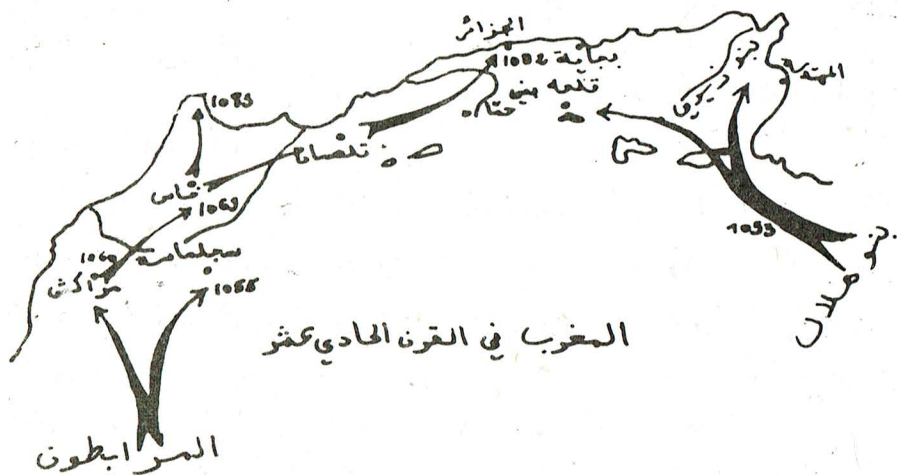 الجزائر
بجاية
1082
قلعة بني
حماد
المهدية
بنو زيري
1083
تلمسان
فاس
1069
سجلماسة
1060
مراكش
1055
1053
بنو هلال
المغرب في القرن الحادي عشر
المرابطون